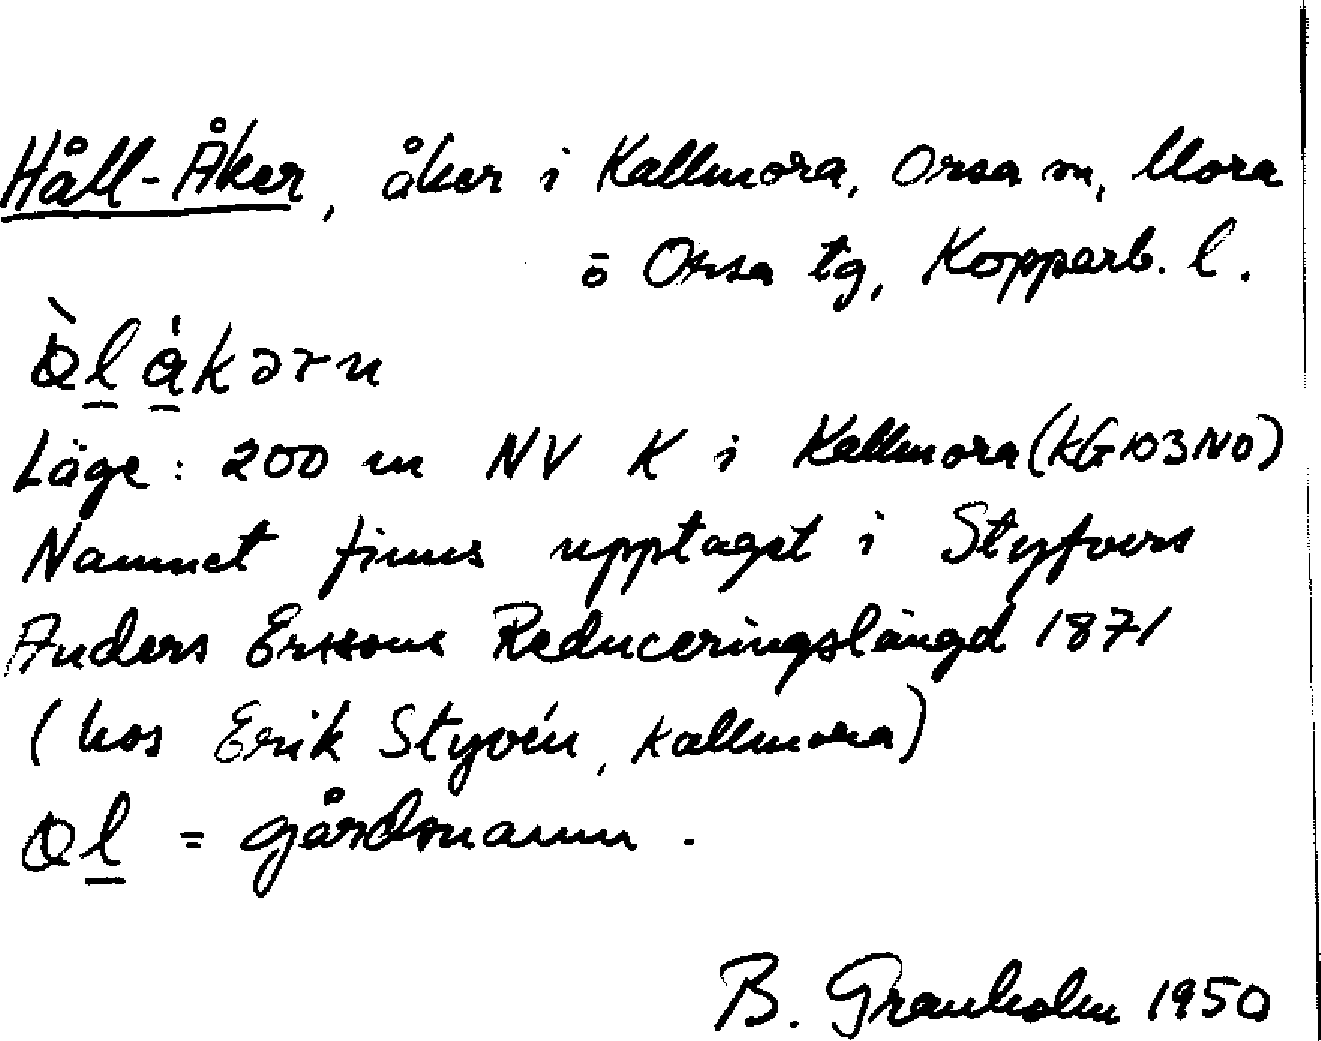 Håll-Åker, åker i Kallmora, Orsa sn, Mora
o Orsa tg, Kopparb. l.
Läge: 200 m NV K i Kallmora (KG103NO)
Namnet finns upptaget i Styfvers
Anders Erssons Reduceringslängd 1871
(hos Erik Styvén, Kallmora)
= gårdsnamn.
B. Granholm 1950